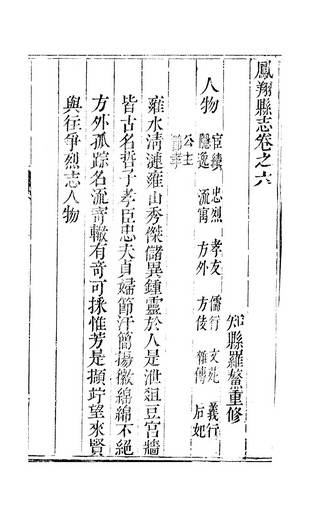 鳳翔縣志卷之六
知縣羅鰲重修
人物
宦績 忠烈 孝友 儒行 文苑 義行
隱逸 流寓 方外 方伎 雜傳 后妃
公主
節孝
雍水清漣雍山秀傑儲異鍾靈於人是泄俎豆宮牆
皆古名哲子孝臣忠夫貞婦節汗簡揚徽綿綿不絕
方外孤踪名流寄轍有奇可採惟芳是擷竚望來賢
與徃爭烈志人物